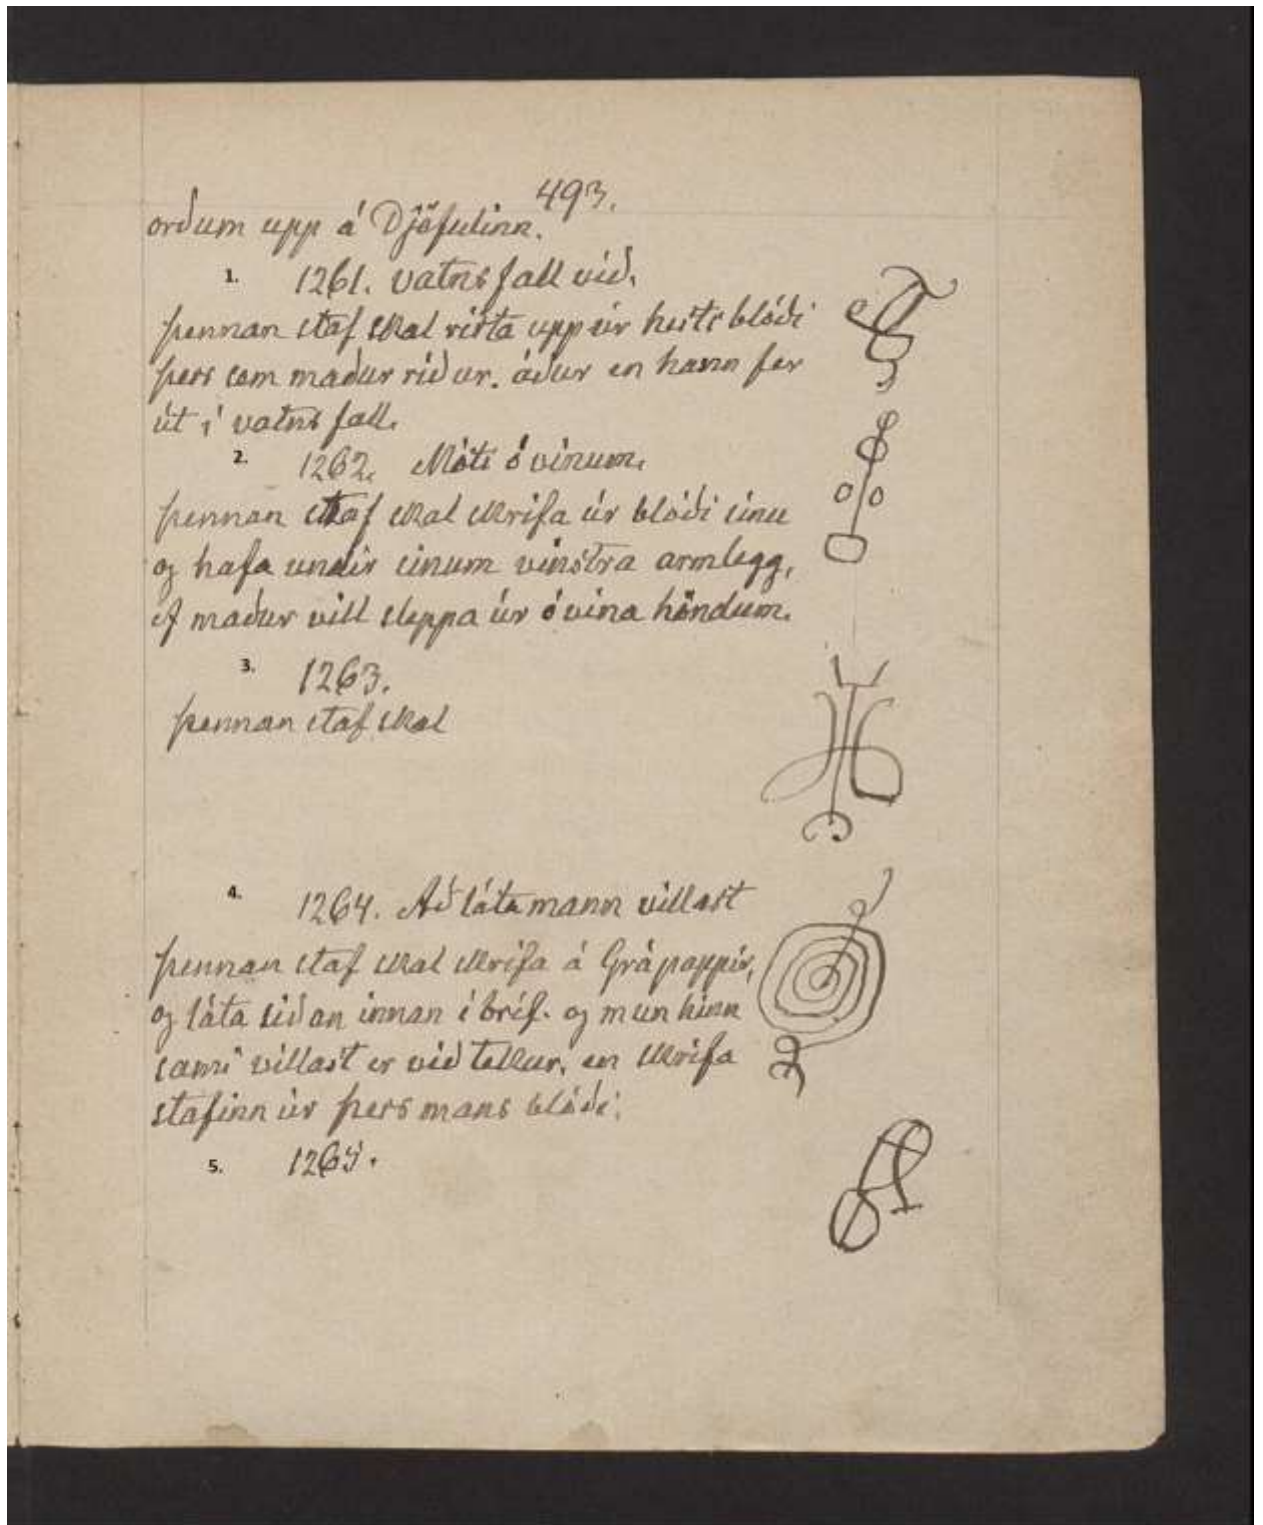 493.
orðum upp á Djöfulinn.
1. 1261. Vatnsfall við.
þennan staf skal rista upp úr hests blóði
þess sem maður ríður. áður en hann fer
út í vatnsfall.
2. 1262. Móti óvinum.
þennan staf skal skrifa úr blóði sínu
og hafa undir sinum vinstra armlegg,
ef maður vill sleppa úr óvina höndum.
3. 1263.
þennan staf skal
4. 1264. Að láta mann villast
þennan staf skal skrifa á Grápappír,
og láta siðan innan í bréf. og mun hinn
sami villast er við tekur, en skrifa
stafinn úr þess mans blóði.
5. 1265.